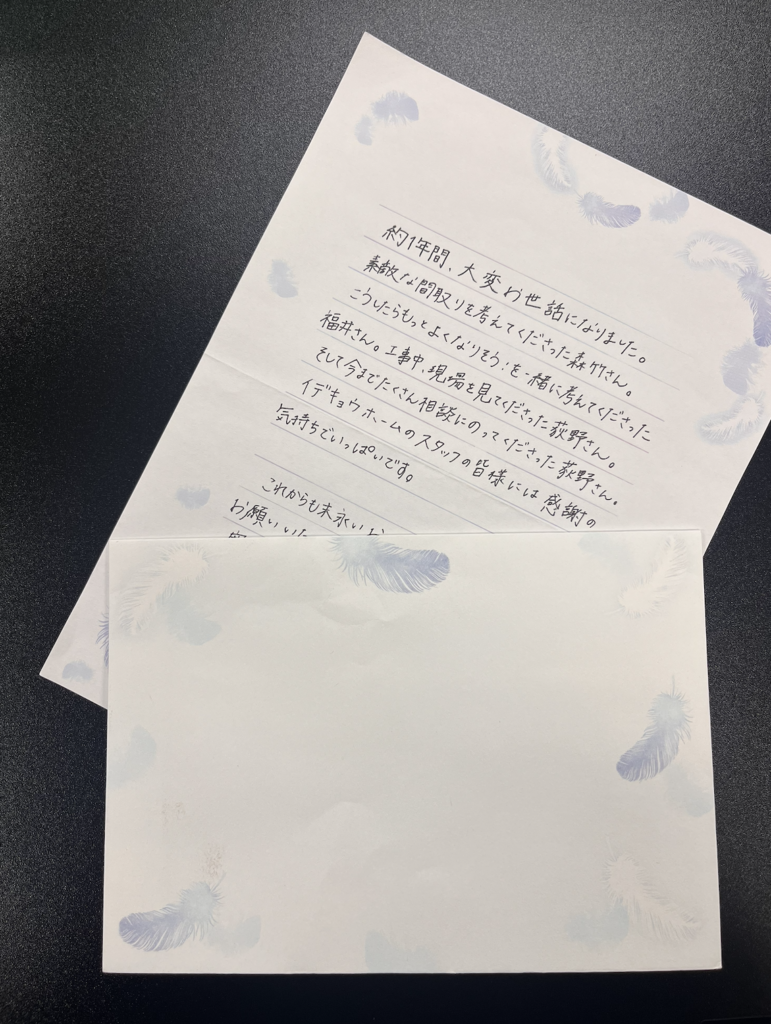 約1年間、大変お世話になりました。
素敵な間取りを考えてくださった森竹さん。
こうしたらもっとよくなりそう!を一緒に考えてくださった
福井さん。工事中、現場を見てくださった荻野さん。
そして今までたくさん相談にのってくださった荻野さん。
イデキョウホームのスタッフの皆様には感謝の
気持ちでいっぱいです。
これからも末永いお
お願いいた